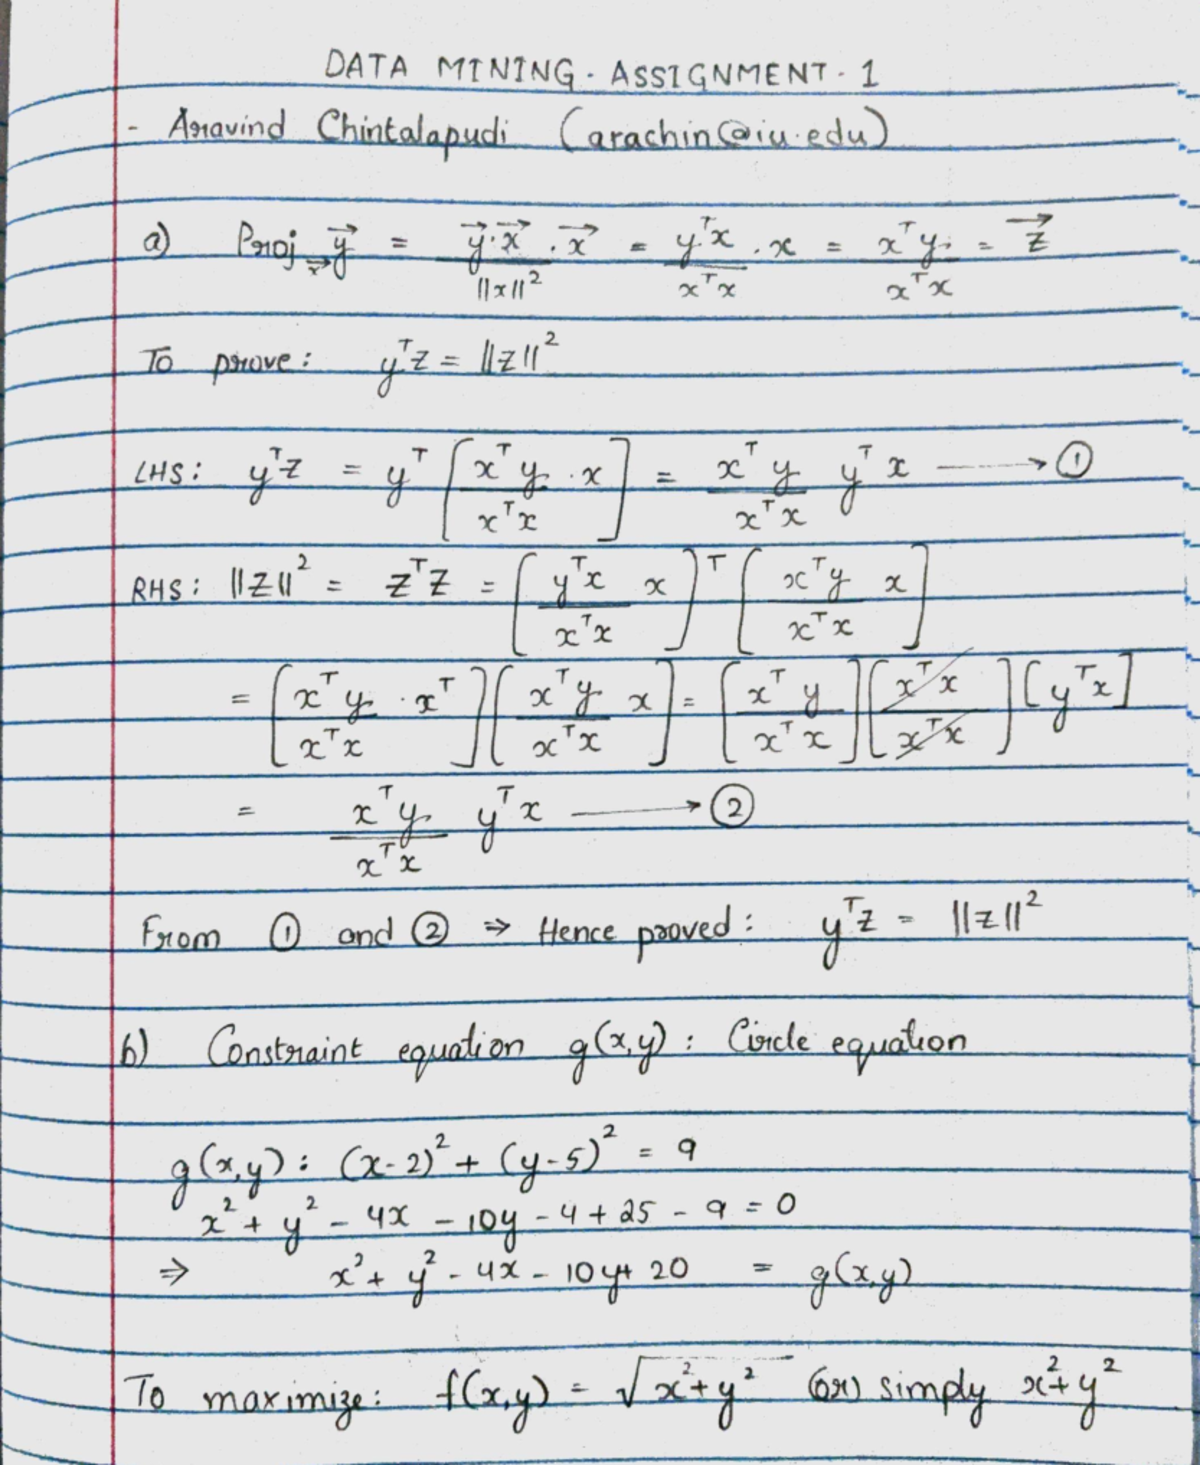 DATA MINING. ASSIGNMENT. 1
- Aravind Chintalapudi (arachin@iu.edu)
a) Proj_x⃗ y⃗ = (y⃗·x⃗)/||x||² . x⃗ = yᵀx/xᵀx . x = xᵀy/xᵀx = z⃗
To prove: yᵀz = ||z||²
LHS: yᵀz = yᵀ [xᵀy/xᵀx . x] = xᵀy/xᵀx yᵀx ⟶ ①
RHS: ||z||² = zᵀz = [yᵀx/xᵀx x]ᵀ [xᵀy/xᵀx x]
= [xᵀy/xᵀx . xᵀ] [xᵀy/xᵀx x] = [xᵀy/xᵀx] [xᵀx/xᵀx] [yᵀx]
= xᵀy/xᵀx yᵀx ⟶ ②
From ① and ② ⇒ Hence proved: yᵀz = ||z||²
b) Constraint equation g(x,y) : Circle equation
g(x,y) : (x-2)² + (y-5)² = 9
x² + y² - 4x - 10y - 4 + 25 - 9 = 0
⇒ x² + y² - 4x - 10y + 20 = g(x,y)
To maximize: f(x,y) = √(x²+y²) (or) simply x²+y²